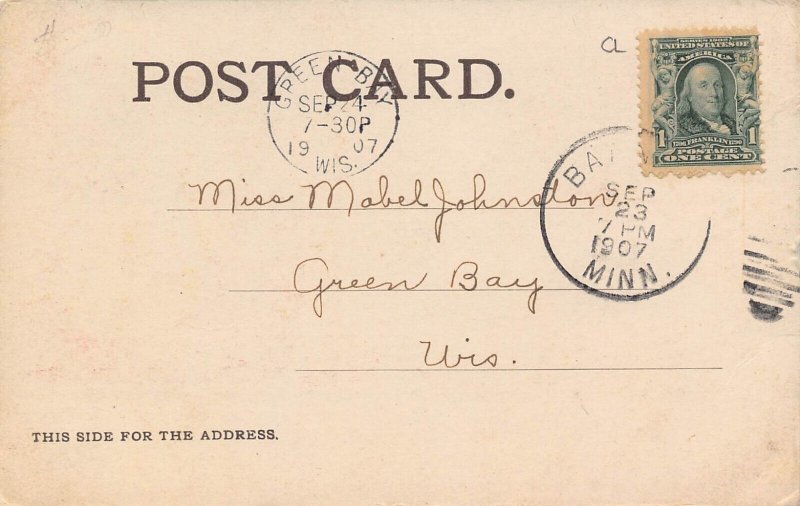 a
SERIES 1902
UNITED STATES OF
AMERICA
1 FRANKLIN 1
POSTAGE
ONE CENT
POST CARD.
GREEN BAY
SEP 24
7-30P
19 07
WIS.
SEP
23
7 PM
1907
MINN.
Miss Mabel Johnston
Green Bay
Wis.
THIS SIDE FOR THE ADDRESS.